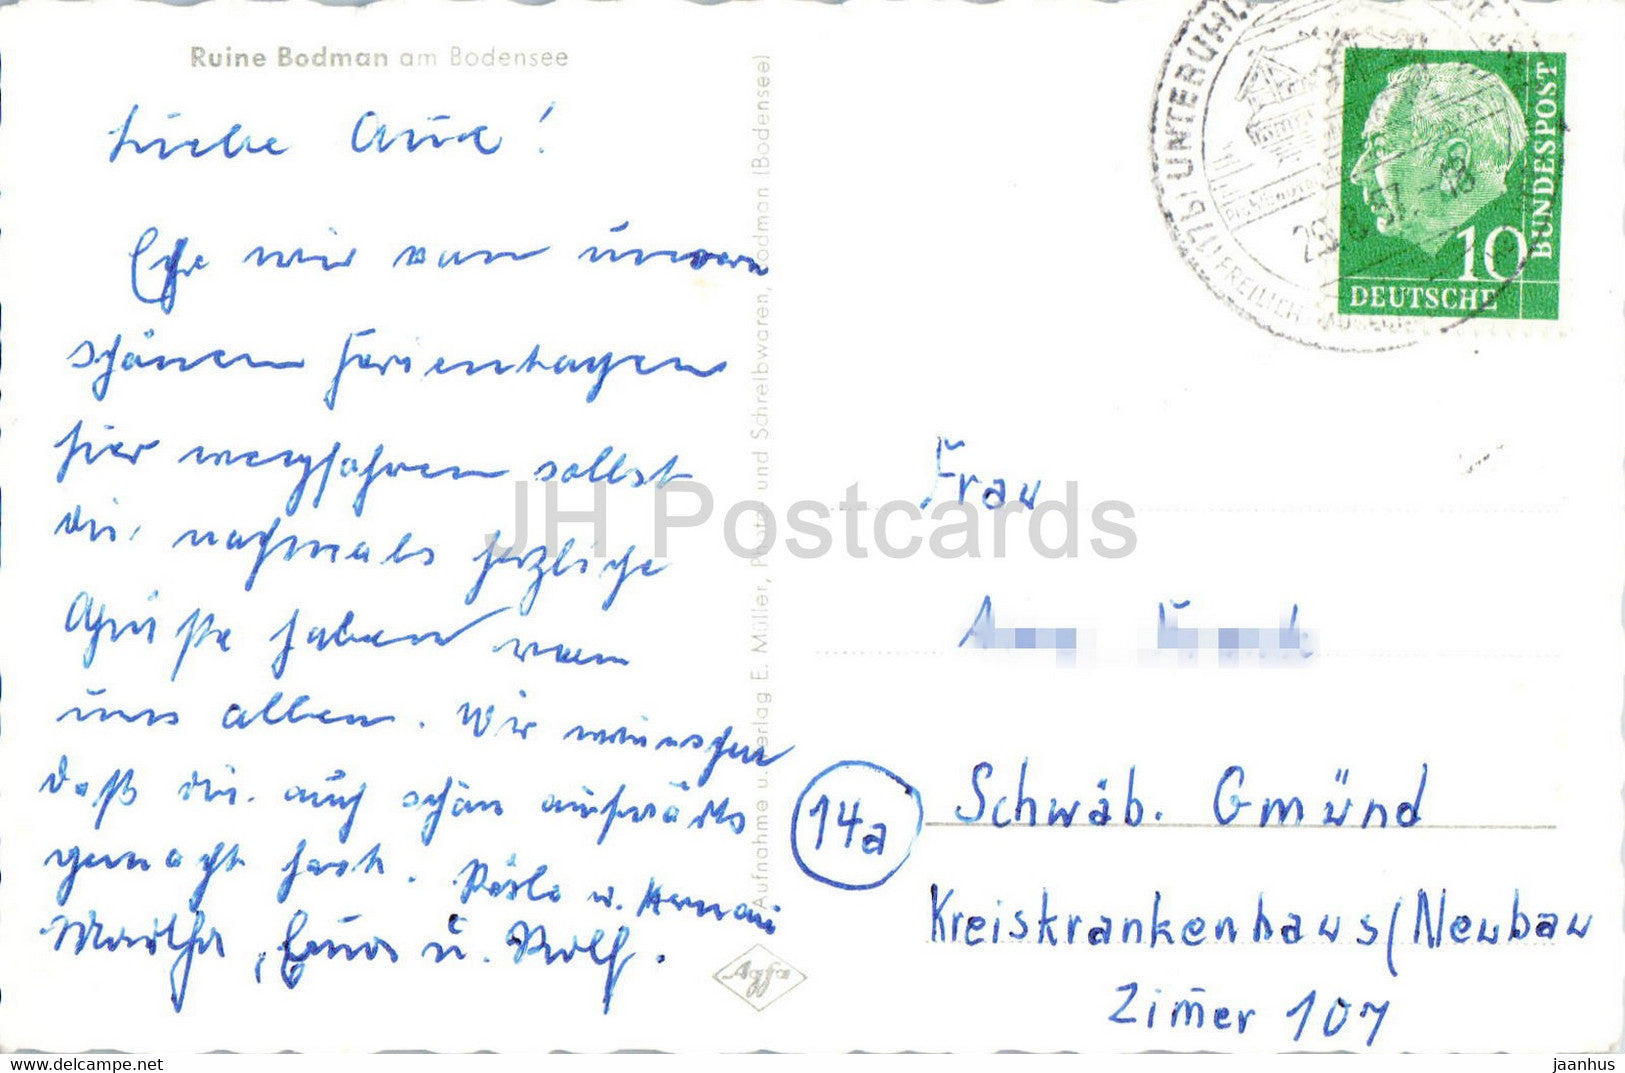 Ruine Bodman am Bodensee
Liebe Anne!
Ehe wir von unsern
schönen Ferientagen
hier wegfahren sollst
du nochmals herzliche
Grüße haben von
uns allen. Wir wünschen
daß du auch schön aufwärts
gemacht hast. Rösle u. Hermann
Martha, Erna u. Rolf.
Aufnahme u. Verlag E. Müller, Photo und Schreibwaren, Bodman (Bodensee)
Agfa
(17b) UNTERUHL
FREILICHTMUSEUM
29.8.57.-18
DEUTSCHE BUNDESPOST
10
Frau
14a Schwäb. Gmünd
Kreiskrankenhaus/Neubau
Zimmer 107
JH Postcards
www.delcampe.net
jaanhus